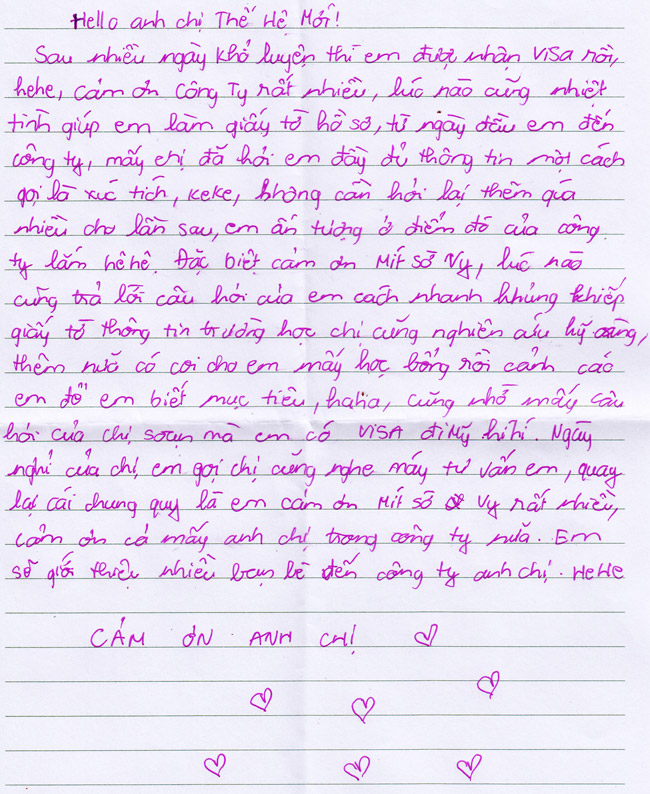 Hello anh chị Thế Hệ Mới!
Sau nhiều ngày khổ luyện thì em được nhận ViSa rồi,
hehe, cảm ơn công Ty rất nhiều, lúc nào cũng nhiệt
tình giúp em làm giấy tờ hồ sơ, từ ngày đầu em đến
công ty, mấy chị đã hỏi em đầy đủ thông tin một cách
gọi là xúc tích, keke, không cần hỏi lại thêm quá
nhiều cho lần sau, em ấn tượng ở điểm đó của công
ty lắm hêhê. Đặc biệt cảm ơn Mít sờ Vy, lúc nào
cũng trả lời câu hỏi của em cách nhanh khủng khiếp
giấy tờ thông tin trường học chị cũng nghiên cứu kỹ càng,
thêm nữa có coi cho em mấy học bổng rồi cảnh cáo
em để em biết mục tiêu, haha, cũng nhờ mấy câu
hỏi của chị soạn mà em có ViSA đi Mỹ hihi. Ngày
nghỉ của chị em gọi chị cũng nghe máy tư vấn em, quay
lại cái chung quy là em cảm ơn Mít sờ Vy rất nhiều,
cảm ơn cả mấy anh chị trong công ty nữa. Em
sẽ giới thiệu nhiều bạn bè đến công ty anh chị. HeHe
CẢM ƠN ANH CHỊ